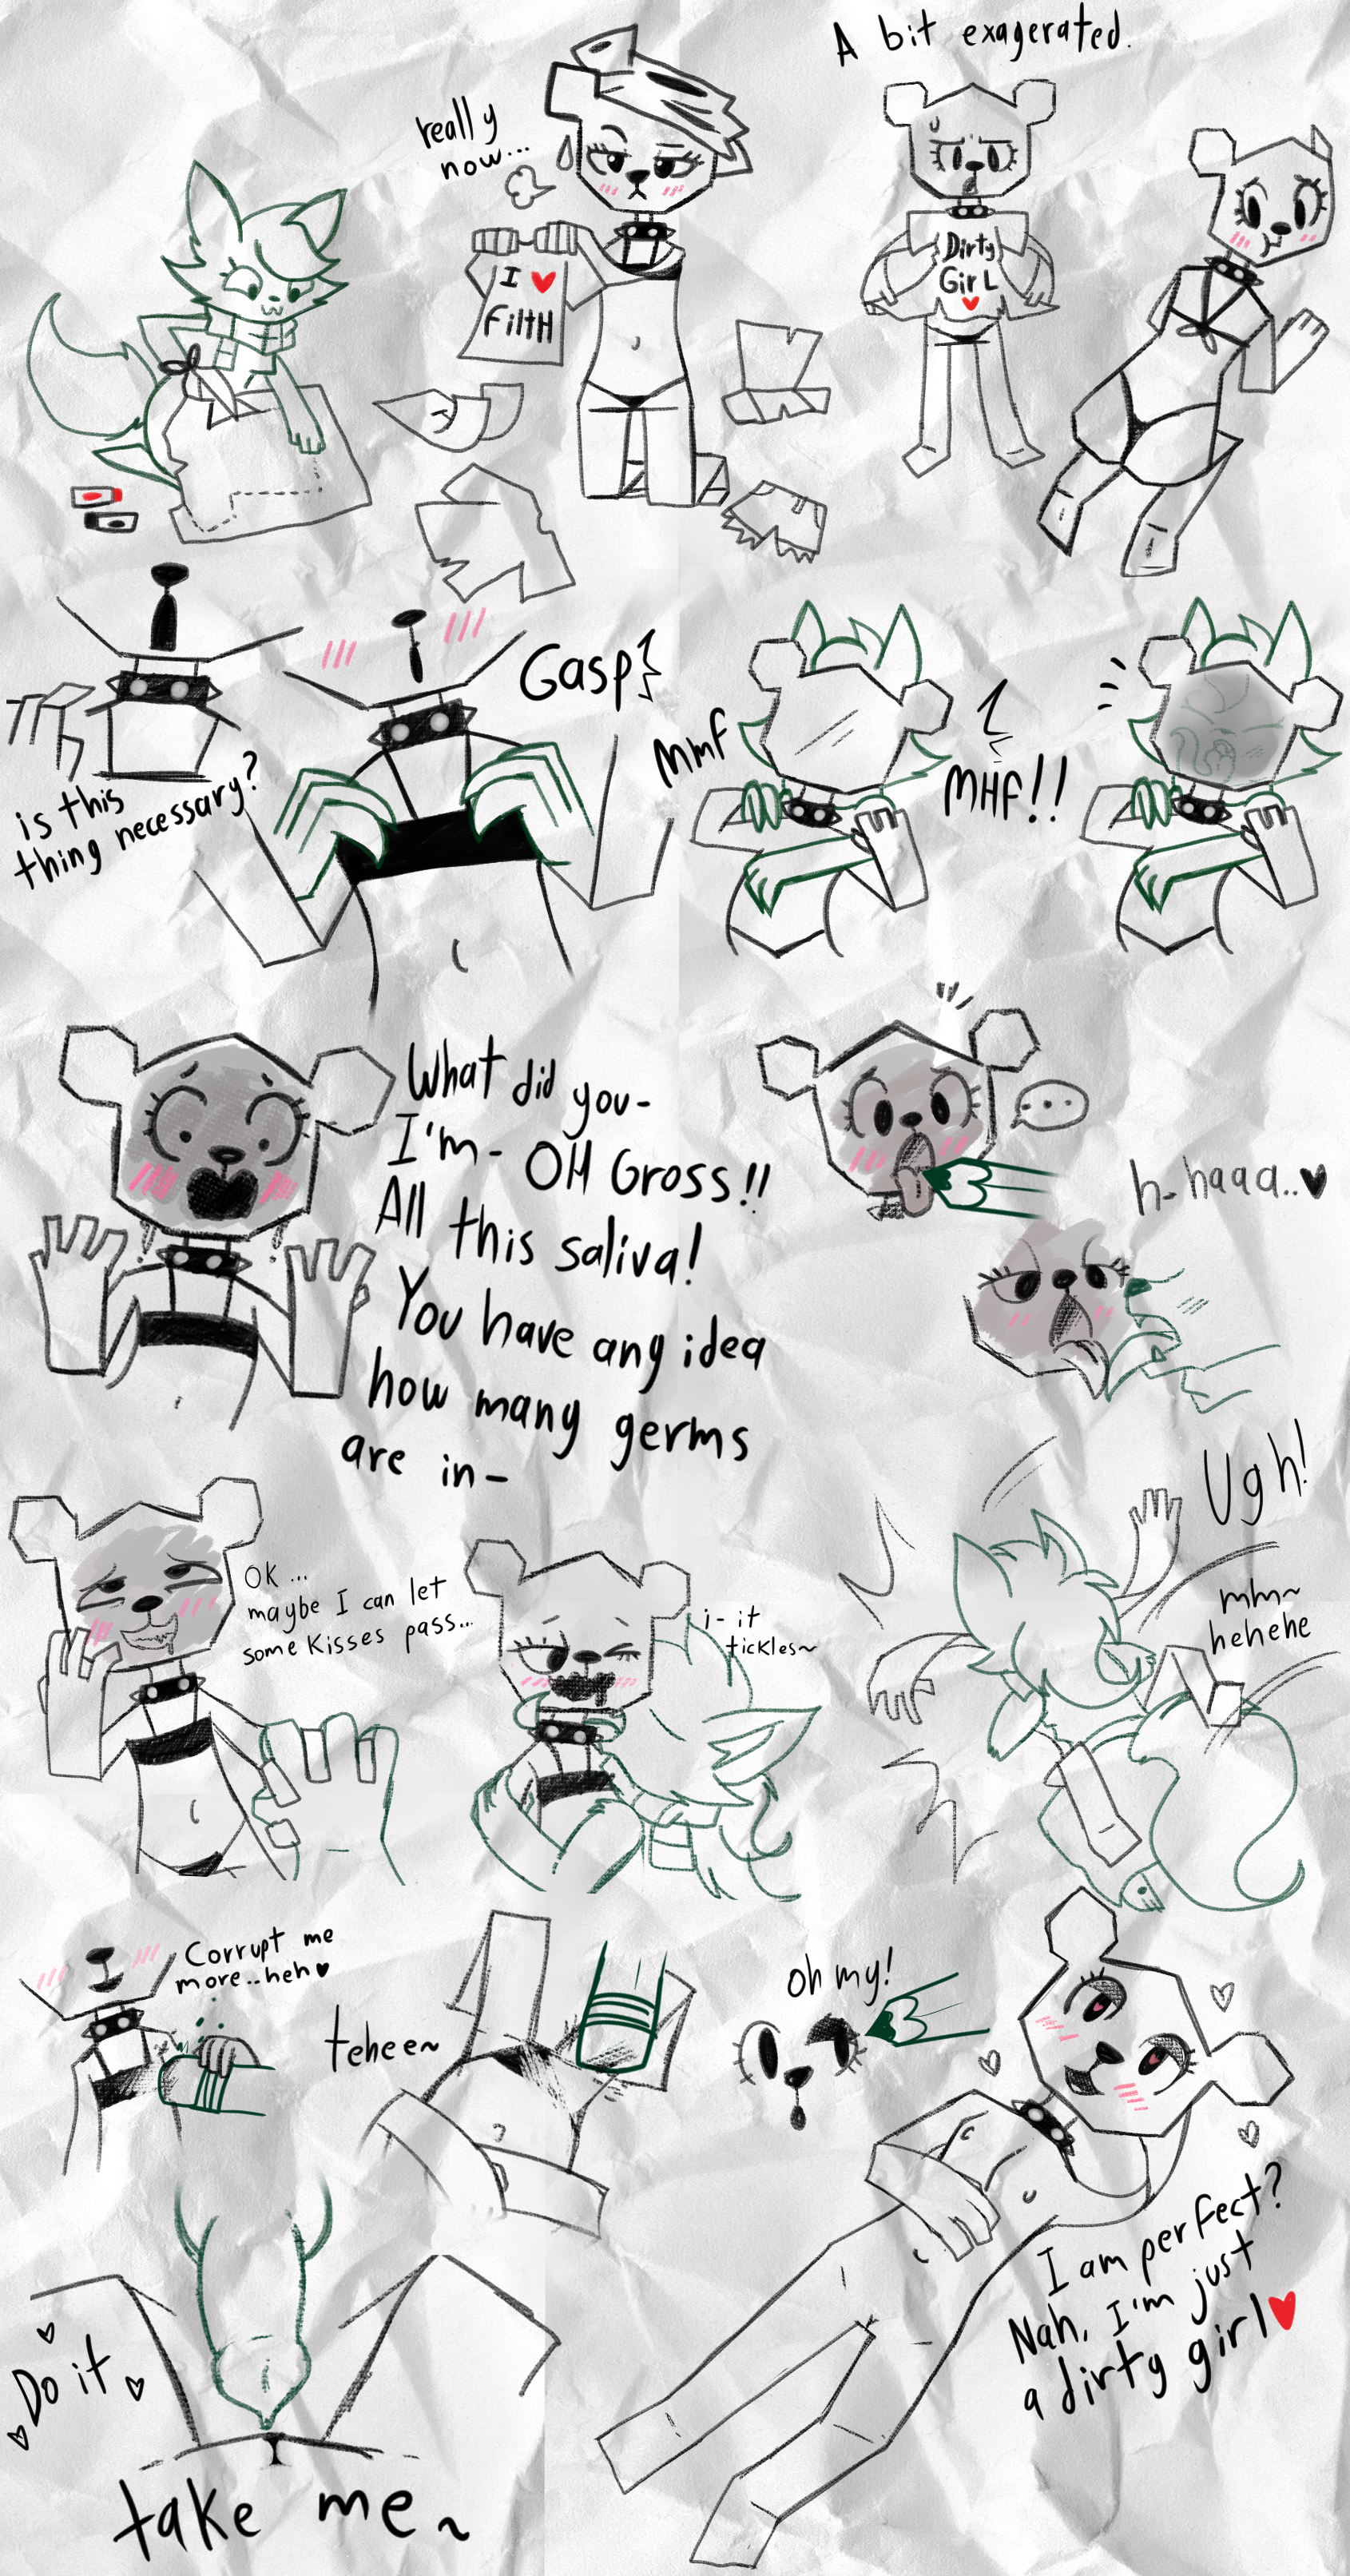 A bit exagerated.
really
now...
I ♥
FiltH
Dirty
GirL
♥
Gasp
is this
thing necessary?
MMF
MHF!!
What did you-
I'm- OH Gross!!
All this saliva!
You have any idea
how many germs
are in-
...
h-haaa..♥
OK...
maybe I can let
some Kisses pass...
i-it
tickles~
Ugh!
mm~
hehehe
Corrupt me
more..heh♥
tehee~
oh my!
I am perfect?
Nah, I'm just
a dirty girl♥
Do it
take me~